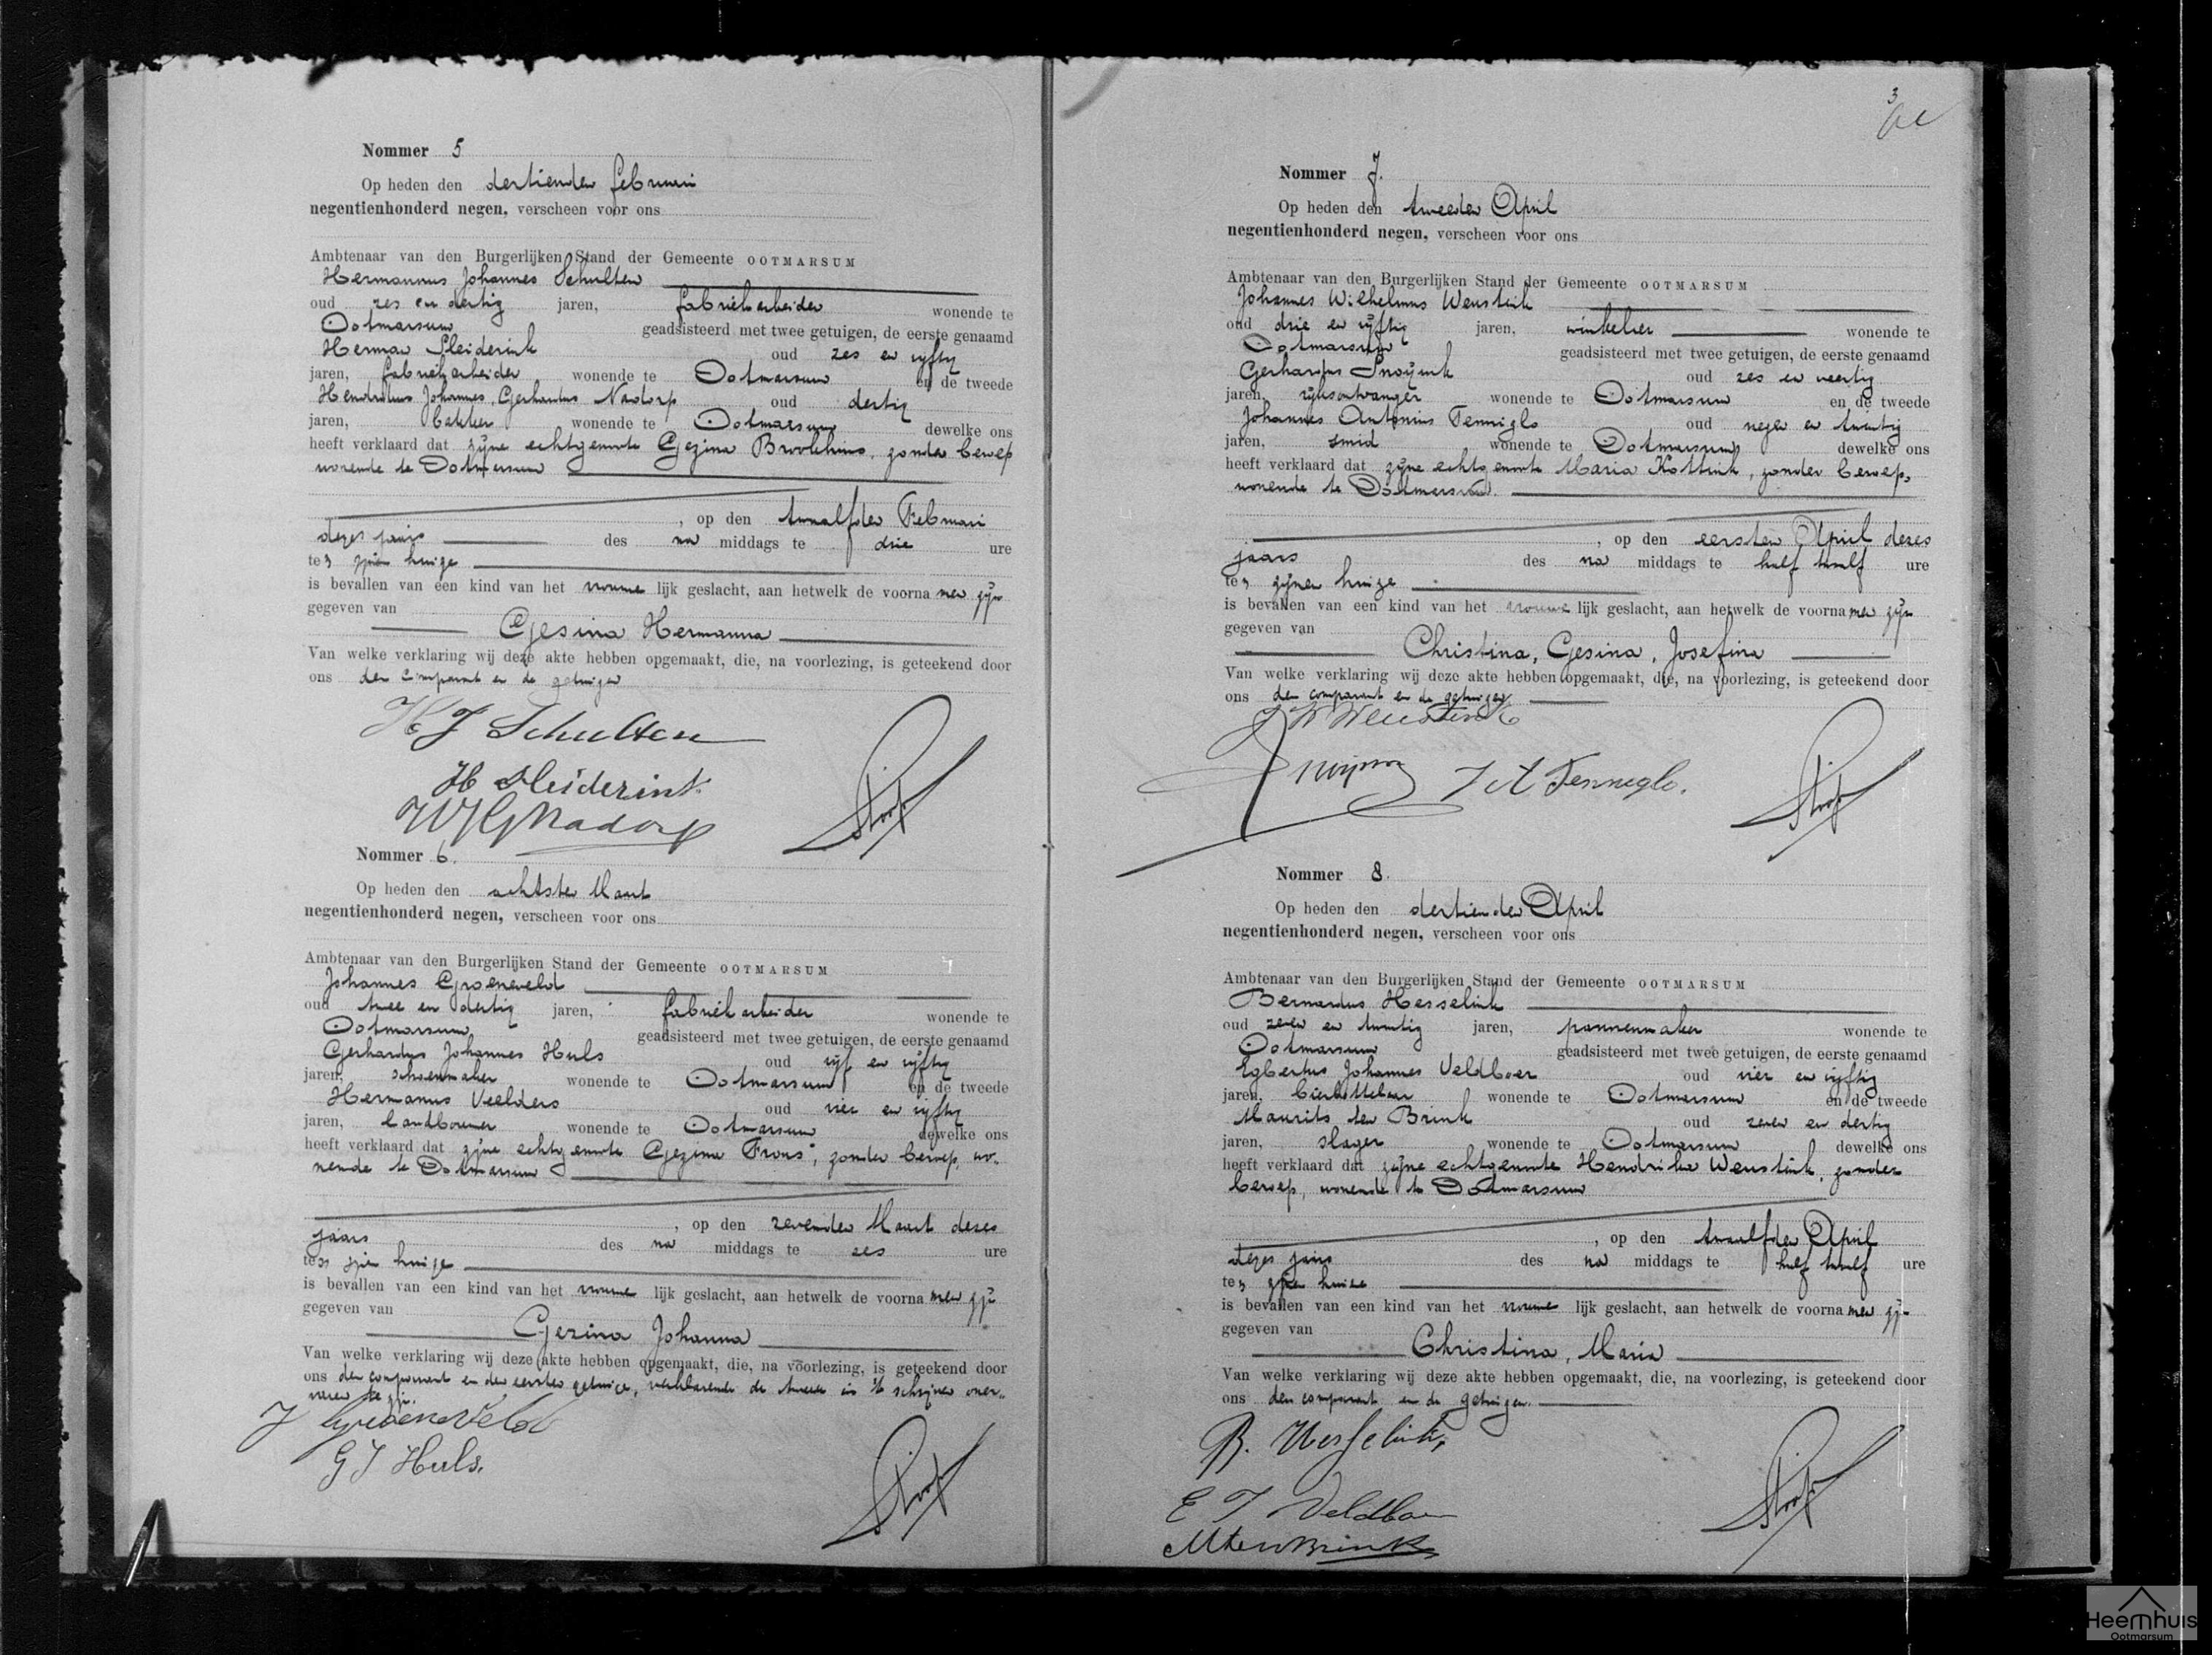 Nommer 5
Op heden den dertienden februari
negentienhonderd negen, verscheen voor ons
Ambtenaar van den Burgerlijken Stand der Gemeente OOTMARSUM
Hermannus Johannes Schulten
oud zes en dertig jaren, fabriekarbeider wonende te
Ootmarsum geadsisteerd met twee getuigen, de eerste genaamd
Herman Sleiderink oud zes en vijftig
jaren, fabriekarbeider wonende te Ootmarsum en de tweede
Hendrikus Johannes Gerhardus Nadorp oud dertig
jaren, bakker wonende te Ootmarsum dewelke ons
heeft verklaard dat zijne echtgenoote Gezina Broekhuis, zonder beroep
wonende te Ootmarsum
, op den twaalfden Februari
dezes jaars des na middags te drie ure
ten zijnen huize
is bevallen van een kind van het vrouwe lijk geslacht, aan hetwelk de voorna men zijn
gegeven van
Gesina Hermanna
Van welke verklaring wij deze akte hebben opgemaakt, die, na voorlezing, is geteekend door
ons den comparant en de getuigen
H J Schulten
H Sleiderink
Nadorp
Nommer 6.
Op heden den achtsten Maart
negentienhonderd negen, verscheen voor ons
Ambtenaar van den Burgerlijken Stand der Gemeente OOTMARSUM
Johannes Groeneveld
oud twee en dertig jaren, fabriekarbeider wonende te
Ootmarsum geadsisteerd met twee getuigen, de eerste genaamd
Gerhardus Johannes Huls oud vijf en vijftig
jaren, schoenmaker wonende te Ootmarsum en de tweede
Hermanus Veelders oud vier en vijftig
jaren, landbouwer wonende te Ootmarsum dewelke ons
heeft verklaard dat zijne echtgenoote Gezina zonder beroep, wo-
nende te Ootmarsum
, op den zevenden Maart dezes
jaars des na middags te zes ure
ten zijnen huize
is bevallen van een kind van het vrouwe lijk geslacht, aan hetwelk de voorna men zijn
gegeven van
Gezina Johanna
Van welke verklaring wij deze akte hebben opgemaakt, die, na voorlezing, is geteekend door
ons den comparant en den eersten getuige, verklarende de tweede in 't schrijven oner-
varen te zijn.
J Groeneveld
G J Huls.
3
Nommer 7.
Op heden den tweeden April
negentienhonderd negen, verscheen voor ons
Ambtenaar van den Burgerlijken Stand der Gemeente OOTMARSUM
Johannes Wilhelmus Weustink
oud drie en vijftig jaren, winkelier wonende te
Ootmarsum geadsisteerd met twee getuigen, de eerste genaamd
Gerhardus Snoijink oud zes en veertig
jaren, rijksontvanger wonende te Ootmarsum en de tweede
Johannes Antonius Tenniglo oud negen en twintig
jaren, smid wonende te Ootmarsum dewelke ons
heeft verklaard dat zijne echtgenoote Maria Kottink, zonder beroep,
wonende te Ootmarsum.
, op den eersten April dezes
jaars des na middags te half twaalf ure
ten zijnen huize
is bevallen van een kind van het vrouwe lijk geslacht, aan hetwelk de voorna men zijn
gegeven van
Christina, Gesina, Josefina
Van welke verklaring wij deze akte hebben opgemaakt, die, na voorlezing, is geteekend door
ons den comparant en de getuigen
J W Weustink
J A Tenneglo.
Nommer 8.
Op heden den dertienden April
negentienhonderd negen, verscheen voor ons
Ambtenaar van den Burgerlijken Stand der Gemeente OOTMARSUM
Bernardus Hesselink
oud zeven en twintig jaren, pannenmaker wonende te
Ootmarsum geadsisteerd met twee getuigen, de eerste genaamd
Egbertus Johannes Veldboer oud vier en vijftig
jaren, bierbottelaar wonende te Ootmarsum en de tweede
Maurits ten Brink oud zeven en dertig
jaren, slager wonende te Ootmarsum dewelke ons
heeft verklaard dat zijne echtgenoote Hendrika Weustink, zonder
beroep, wonende te Ootmarsum
, op den twaalfden April
dezes jaars des na middags te half twaalf ure
ten zijnen huize
is bevallen van een kind van het vrouwe lijk geslacht, aan hetwelk de voorna men zijn
gegeven van
Christina, Maria
Van welke verklaring wij deze akte hebben opgemaakt, die, na voorlezing, is geteekend door
ons den comparant en de getuigen.
B. Hesselink
E J Veldboer
M ten Brink
Heemhuis
Ootmarsum